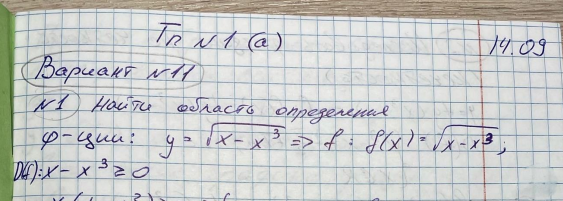 Тп №1 (а)
14.09
Вариант №11
№1 Найти область определения
ф-ции: y = √x - x³ => f : f(x) = √x-x³;
D(f): x - x³ ≥ 0